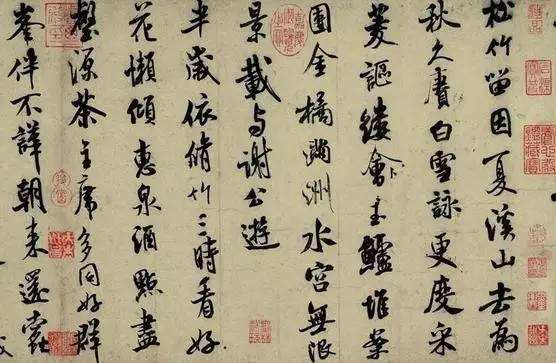 松竹留因夏溪山去為
秋久賡白雪詠更度采
菱謳縷會玉鱸堆案
團金橘滿洲水宮無限
景載與謝公遊
半歲依脩竹三時看好
花懶傾惠泉酒點盡
壑源茶主席多同好群
峯伴不譁朝來還蠹